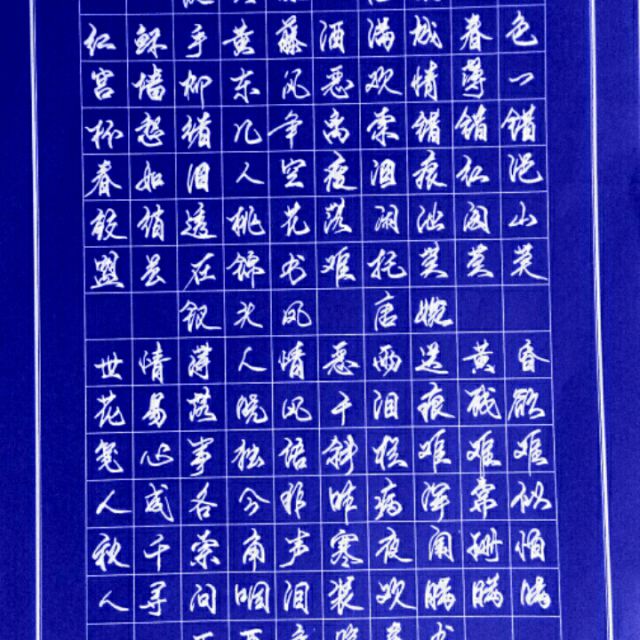 红酥手黄藤酒满城春色
宫墙柳东风恶欢情薄一
杯愁绪几年离索错错错
春如旧人空瘦泪痕红浥
鲛绡透桃花落闲池阁山
盟虽在锦书难托莫莫莫
钗头凤 唐婉
世情薄人情恶雨送黄昏
花易落晓风干泪痕残欲
笺心事独语斜栏难难难
人成各今非昨病魂常似
秋千索角声寒夜阑珊怕
人寻问咽泪装欢瞒瞒瞒